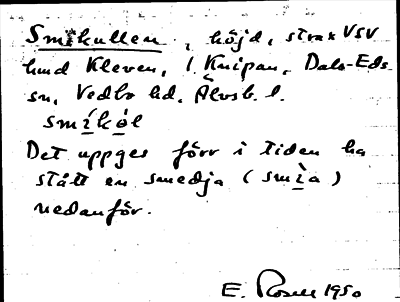 Smikullen, höjd, strax VSV
hmd Kleven, l. Knipan, Dals-Eds
sn, Vedbo hd, Älvsb. l.
smíkòl
Det uppges förr i tiden ha
stått en smedja (smìa)
nedanför.
E. Rosell 1950